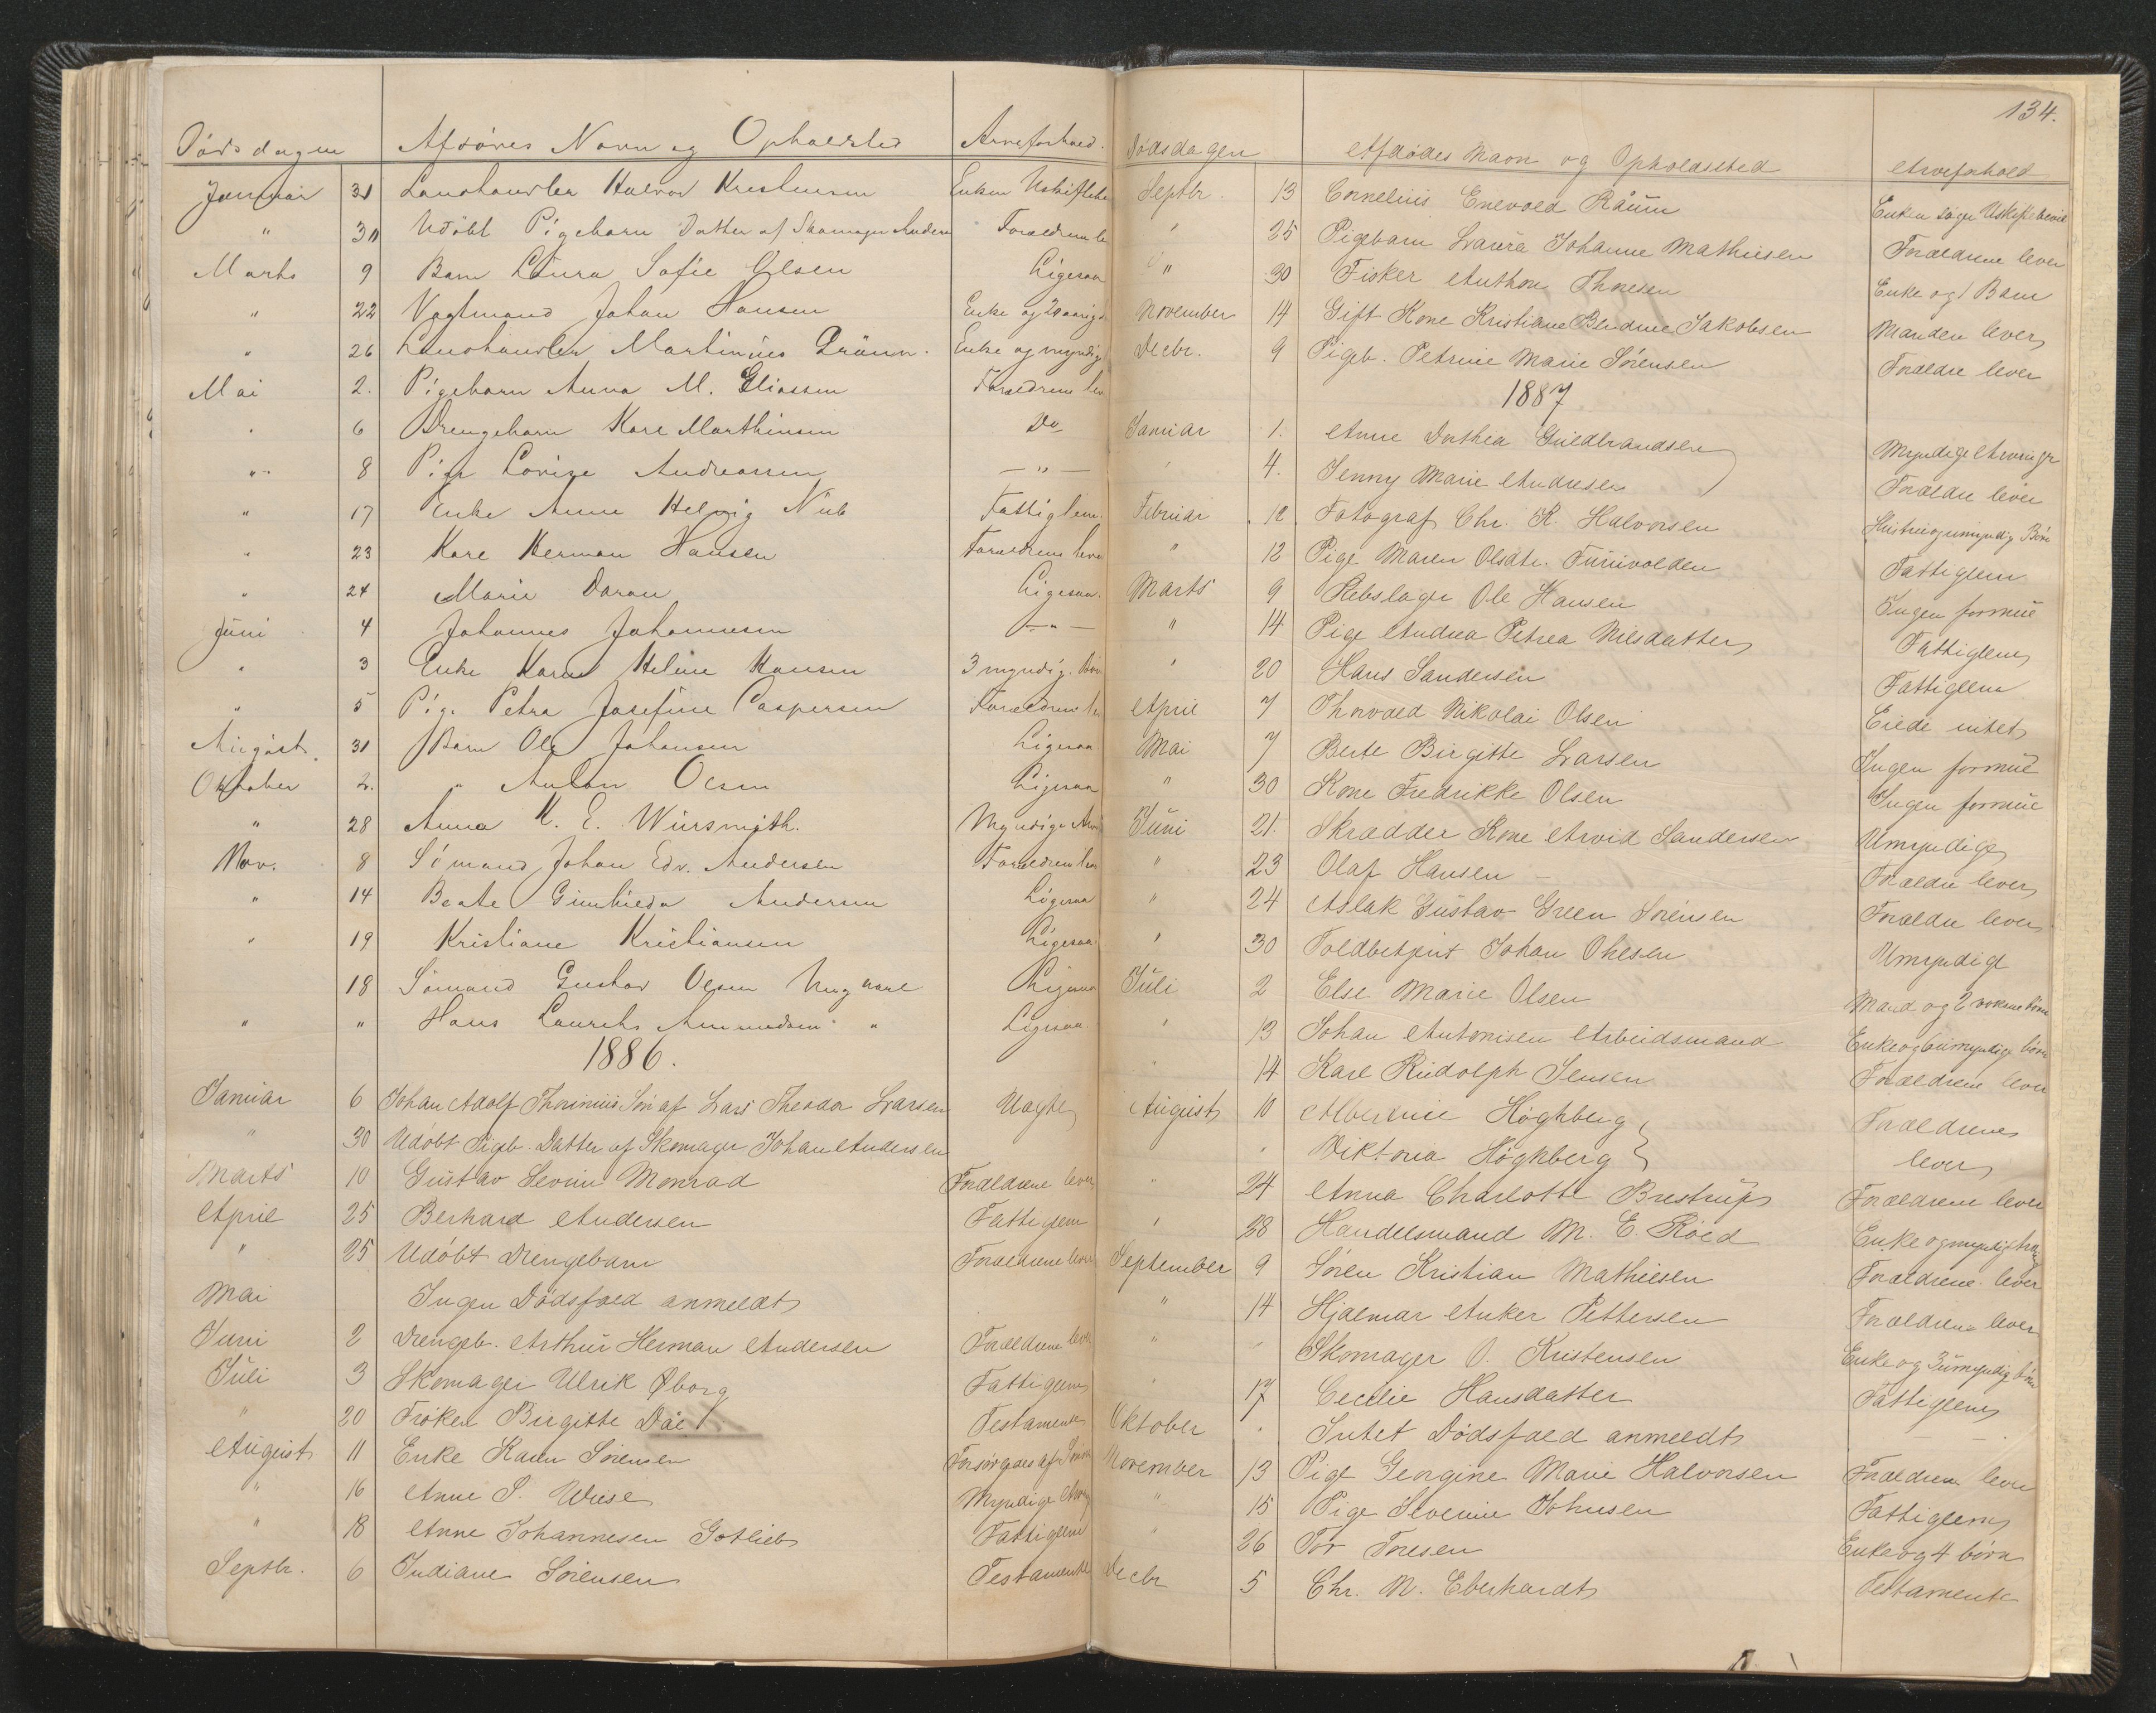 Dødsdagen Afdødes Navn og Opholdsted Arveforhold.
Januar 31 Landhandler Halvor Kristensen Enken Uskiftebe
" 30 Udöbt Pigebarn Datter af Skomager Anders Forældrene le
Marts 9 Barn Laura Sofie Olsen Ligesaa
" 22 Vagtmand Johan Hansen Enke og
" 26 Landhandler Martinius Enke og myndig
Mai 2. Pigebarn Anna M. Eliassen Forældrene lev
" 6 Drengebarn Karl Marthinsen Do
" 8 Pige Lovise Andreassen — " —
" 17 Enke Anne Helvig Nüb Fattiglem.
" 23 Karl Herman Hansen Forældrene leve
" 24 Marie Ligesaa.
Juni 4 Johannes Johannesen — " —
" 3 Enke Karen Heline Hansen 3 myndig. Bør
" 5 Pige Petra Josefine Caspersen Forældrene le
August. 31 Barn Ole Johansen Ligesaa
Oktober 2. " Anton Olsen Ligesaa
" 28 Anna K. E. Würsmith. Myndige Arv
Nov. 8 Sömand Johan Edv. Andersen Forældrene lev
" 14 Beate Gunhilda Andersen Ligesaa
" 19 Kristiane Kristiansen Ligesaa.
18 Sömand Gustav Olsen Ungkarl Ligesaa
" " Hans Laurits Ammundsen " Ligesaa.
1886.
Januar 6 Johan Adolf Thorinius Søn af Lars Theodor Larsen Uægte
" 30 Udøbt Pigeb. Datter af Skomager Johan Andersen
Marts 10 Gustav Severin Monrad Forældrene lever
April 25 Berhard Andersen Fattiglem
" 25 Udøbt Drengebarn Forældrene lever
Mai Ingen Dødsfald anmeldt
Juni 2 Drengeb. Arthur Herman Andersen Forældrene lever
Juli 3 Skomager Ulrik Øborg Fattiglem
" 20 Frøken Birgitte Dåe Testamente
August 11 Enke Karen Sørensen Forsørgedes af Sønnen
" 16 Anne S. Wiese Myndige Arving
" 18 Anne Johannesen Gotlieb Fattiglem
Septbr. 6 Indiane Sørensen Testamente
134.
Dødsdagen Afdødes Navn og Opholdssted Arveforhold
Septbr. 13 Cornelius Enevold Råum Enken søger Uskiftebevil
" 25 Pigebarn Laura Johanne Mathiesen Forældrene lever
" 30 Fisker Anthon Thoresen Enke og 1 Barn
November 14 Gift Kone Kristiane Jakobsen Manden lever
Decbr. 9 Pigeb. Petrine Marie Sørensen Forældre lever
1887
Januar 1. Anne Dorthia Guldbrandsen Myndige Arvinger
" 4. Jenny Marie Andresen Forældre lever
Februar 12 Fotograf Chr. K. Halvorsen Hustru og umyndig Børn
" 12 Pige Maren Olsdtr. Furuvolden Fattiglem
Marts 9 Rebslager Ole Hansen Ingen formue
" 14 Pige Andrea Petrea Nilsdatter Fattiglem
" 20 Hans Sandersen Fattiglem
April 7 Thorvald Nikolai Olsen Eiede intet
Mai 7 Berte Birgitte Larsen Ingen formue
" 30 Kone Fredrikke Olsen Ingen formue
Juni 21. Skrædder Kone Arvid Sandersen Umyndige
" 23 Olaf Hansen — Forældre lever
" 24 Aslak Gustav Green Sørensen Forældre lever
" 30 Toldbetjent Johan Ohlsen Umyndige
Juli 2 Else Marie Olsen Mand og 2 voksne børn
" 13 Johan Antonisen Arbeidsmand Enke og 6 umyndige børn
" 14 Karl Rudolph Jensen Forældrene lever
August 10 Albertine Høghberg Forældrene
" Viktoria Høghberg lever
" 24 Anna Charlotte Brestrup Forældrene lever
" 28 Handelsmand M. E. Røed Enke og myndig
September 9 Søren Kristian Mathiesen Forældrene lever
" 14 Hjalmar Anker Pettersen Forældrene lever
" " Skomager O. Kristensen Enke og 3 umyndig børn
" 17 Cecilie Hansdatter Fattiglem
Oktober " Intet Dødsfald anmeldt —
November 13 Pige Georgine Marie Halvorsen Forældrene lever
" 15 Pige Severine Johnsen Fattiglem
" 26 Tor Toresen Enke og 4 børn
Decbr 5 Chr. M. Eberhardt Testamente